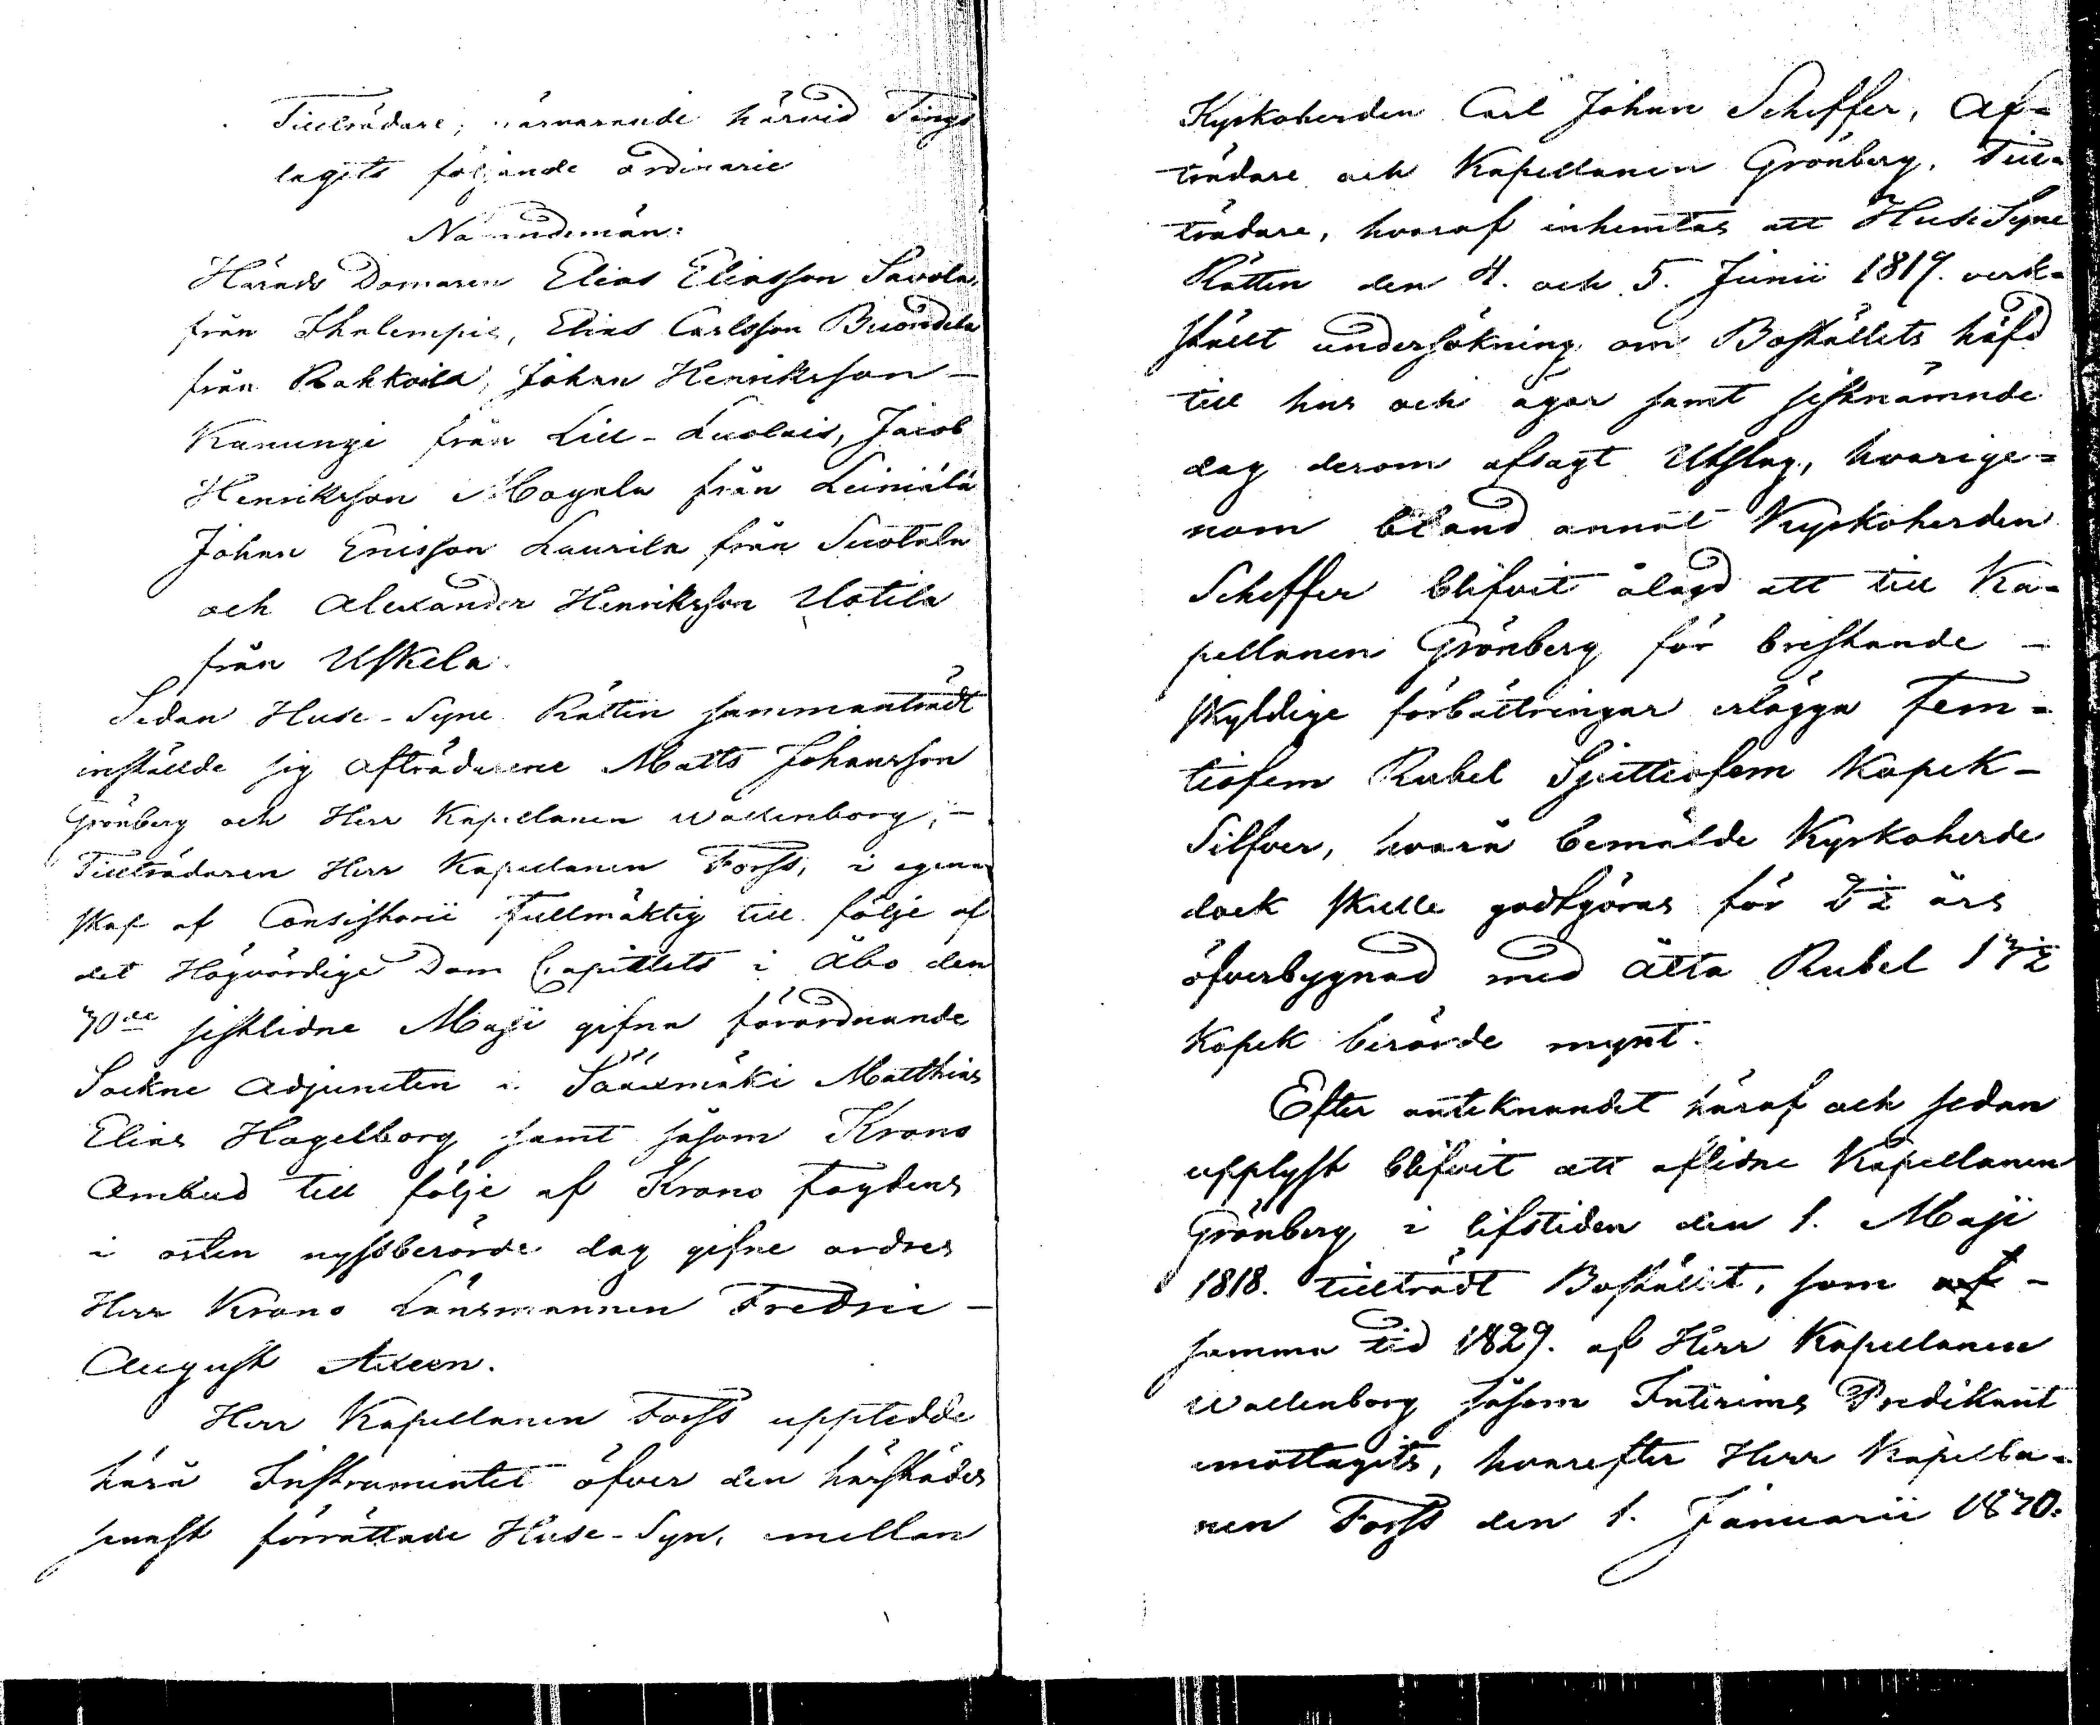 Tillträdare; närvarande härvid Tings
lagets följande ordinarie
Nämndemän:
Härads Domaren Elias Eliasson Savola,
från Ihalempis, Elias Carlsson Buondela
från Rahkoila, Johan Henriksson –
Kanungi från Lill-Luolais, Jacob
Henriksson Magala från Leiniälä
Johan Ericsson Laurila från Suotala
och Alexander Henriksson Uotila
från Uskela.
Sedan Huse-Syne Rätten sammanträdt
inställde sig Afträdarene Matts Johansson
Grönberg och Herr Kapellanen Wallenborg, –
Tillträdaren Herr Kapellanen Forss, i egen
skap af Consistorii Fullmäktig till följe af
det Högvördige Dom Capitlets i Åbo den
30de sistlidne Maji gifna förordnande
Sockne Adjuncten i Sääxmäki Matthias
Elias Hagelborg samt såsom Krono
Ombud till följe af Krono Fogdens
i orten nyssberörde dag gifne ordres
Herr Krono Länsmannen Fredric –
August Axeen.
Herr Kapellanen Forss upptedde
härå Instrumentet öfver den härstädes
senast förrättade Huse-Syn, mellan
Kyrkoherden Carl Johan Scheffer, Af=
trädare och Kapellanen Grönberg, Till=
trädare, hvaraf inhemtas att HuseSyne
Rätten den 4. och 5. Junii 1819. verk=
ställt undersökning om Boställets häfd
till hus och ägor samt sistnämnde
dag derom afsagt Utslag, hvarige=
nom bland annat Kyrkoherden
Scheffer blifvit ålagd att till Ka=
pellanen Grönberg för bristande –
skyldige förbättringar erlägga Fem=
tiofem Rubel Sjuttiofem Kopek –
Silfver, hvarå bemälde Kyrkoherde
dock skulle godtgöras för ½ års
öfverbygnad med Åtta Rubel 13½
Kopek berörde mynt.
Efter anteknandet häraf och sedan
upplyst blifvit att aflidne Kapellanen
Grönberg i lifstiden den 1. Maji
1818. tillträdt Bostället, som af –
samma tid 1829. af Herr Kapellanen
Wallenborg såsom Interims Predikant
emottagits, hvarefter Herr Kapella=
nen Forss den 1. Januarii 1830.